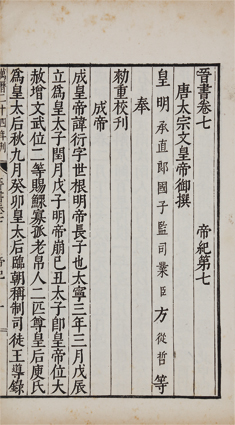 晉書卷七　帝紀第七
唐太宗文皇帝御撰
皇明承直郎國子監司業臣方從哲等
奉
勑重校刊
成帝
成皇帝諱衍字世根明帝長子也太寧三年三月戊辰
立爲皇太子閏月戊子明帝崩己丑太子即皇帝位大
赦增文武位二等賜鰥寡孤老帛人二匹尊皇后庾氏
爲皇太后秋九月癸卯皇太后臨朝稱制司徒王導錄